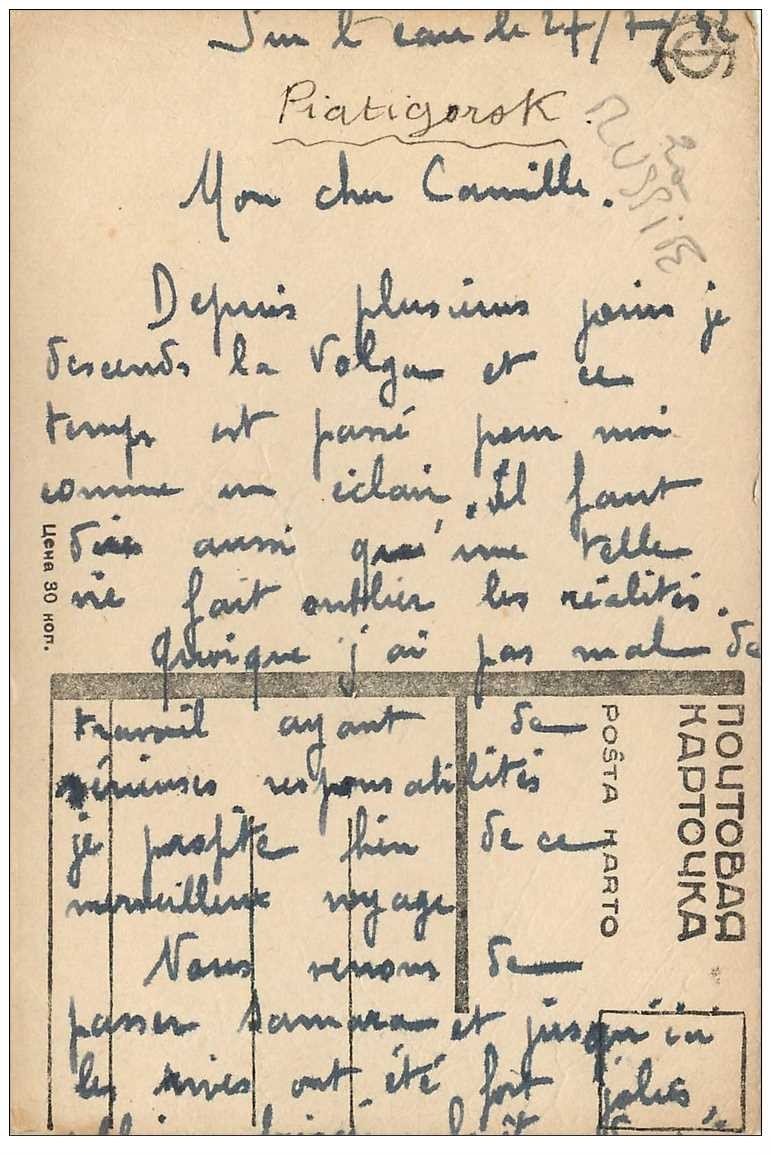 Sur l'eau le 27/7/32
Piatigorsk.
20
RUSSIE
Mon cher Camille.
Depuis plusieurs jours je
descends la Volga et ce
temps est passé pour moi
comme un éclair, il faut
dire aussi qu'une telle
vie fait oublier les réalités.
Quoique j'ai pas mal de
travail ayant de
sérieuses responsabilités
je profite bien de ce
merveilleux voyage
Nous venons de
passer Samara et jusqu'ici
les rives ont été fort jolies,
Цена 30 коп.
ПОЧТОВАЯ
КАРТОЧКА
POŜTA KARTO